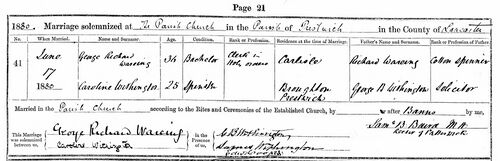 Page 21
1880. Marriage solemnized at The Parish Church in the Parish of Prestwich in the County of Lancaster
No. When Married. Name and Surname. Age. Condition. Rank or Profession. Residence at the time of Marriage. Father's Name and Surname. Rank or Profession of Father.
41 June 17 1880 George Richard Wareing 36 Bachelor Clerk in Holy orders Carlisle Richard Wareing Cotton Spinner
Caroline Withington 25 Spinster Broughton Prestwich George B Withington Solicitor
Married in the Parish Church according to the Rites and Ceremonies of the Established Church, by after Banns by me,
This Marriage was solemnized between us, George Richard Wareing Caroline Withington In the Presence of us, G B Withington
Rector of